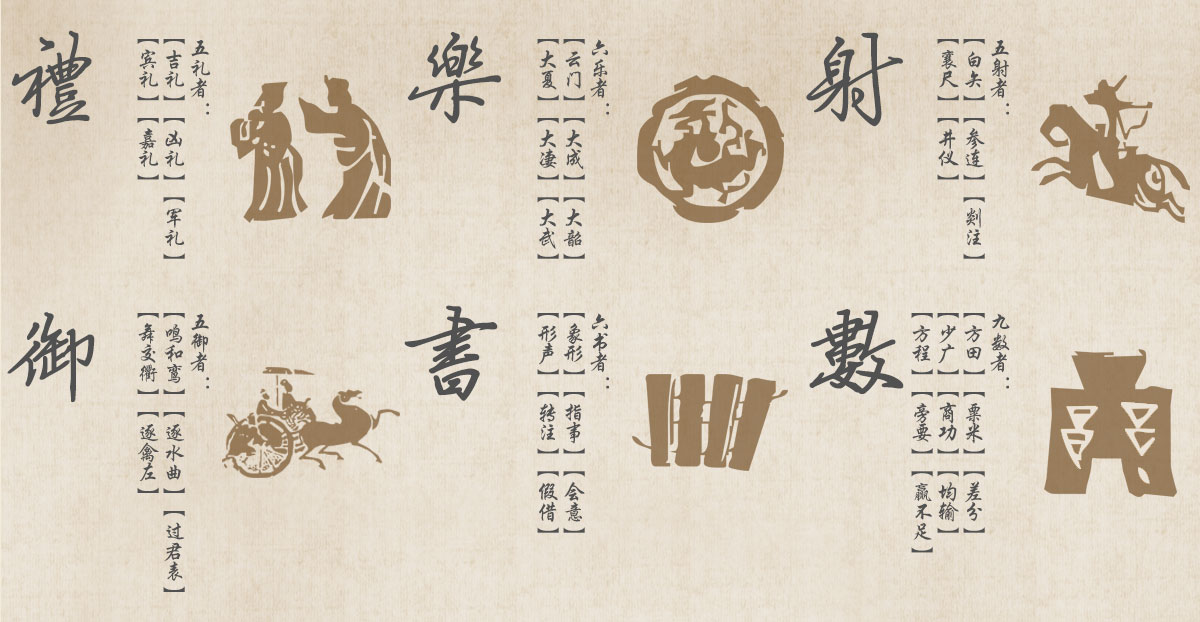 禮
五礼者：
【吉礼】【凶礼】【军礼】
【宾礼】【嘉礼】
樂
六乐者：
【云门】【大成】【大韶】
【大夏】【大凄】【大武】
射
五射者：
【白矢】【参连】【剡注】
【襄尺】【井仪】
御
五御者：
【鸣和鸾】【逐水曲】【过君表】
【舞交衢】【逐禽左】
書
六书者：
【象形】【指事】【会意】
【形声】【转注】【假借】
數
九数者：
【方田】【粟米】【差分】
【少广】【商功】【均输】
【方程】【旁要】【赢不足】